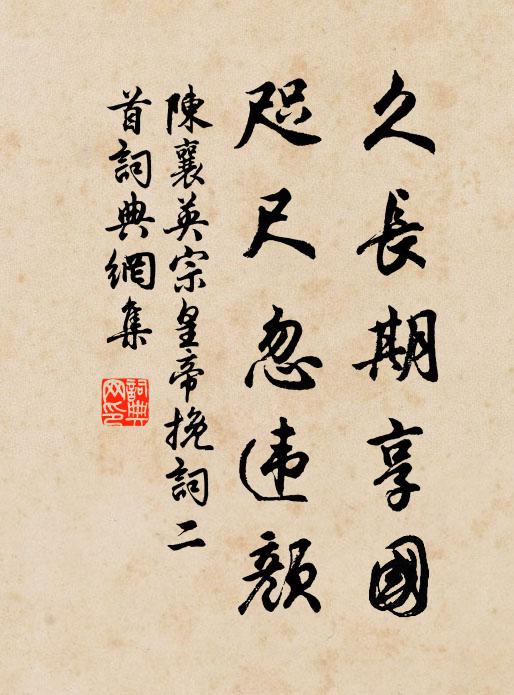 久長期享國
咫尺忽违顏
陳襄英宗皇帝挽詞二
首詞典網集
詞典
网印